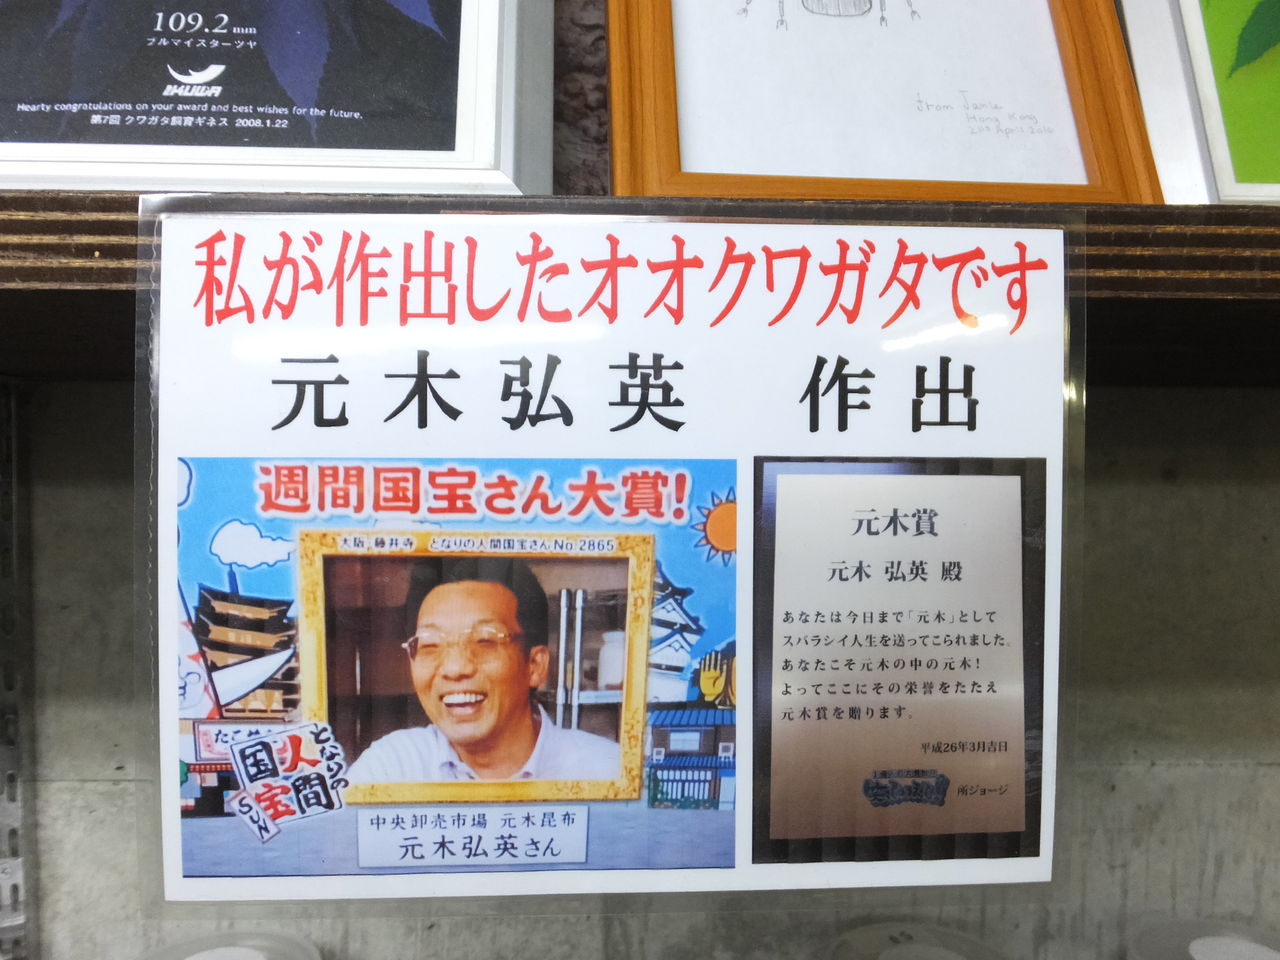 109.2 mm
ブルマイスターツヤ
Hearty congratulations on your award and best wishes for the future.
第7回 クワガタ飼育ギネス 2008.1.22
from Jamie
Hong Kong
April 2010
私が作出したオオクワガタです
元木弘英 作出
週間国宝さん大賞!
大阪 藤井寺 となりの人間国宝さん No.2865
となりの
人間
国宝
SUN
中央卸売市場 元木昆布
元木弘英さん
元木賞
元木 弘英 殿
あなたは今日まで「元木」として
スバラシイ人生を送ってこられました。
あなたこそ元木の中の元木!
よってここにその栄誉をたたえ
元木賞を贈ります。
平成26年3月吉日
所ジョージ